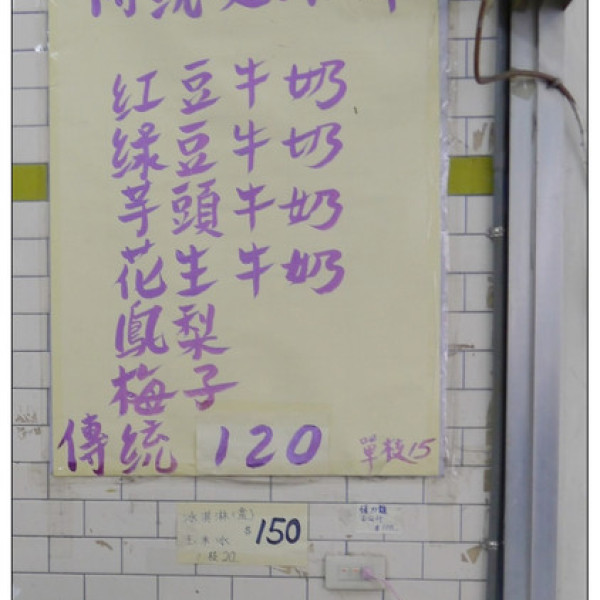 傳統
红豆牛奶
绿豆牛奶
芋頭牛奶
花生牛奶
鳳梨
梅子
傳統 120 單枝15
150
20